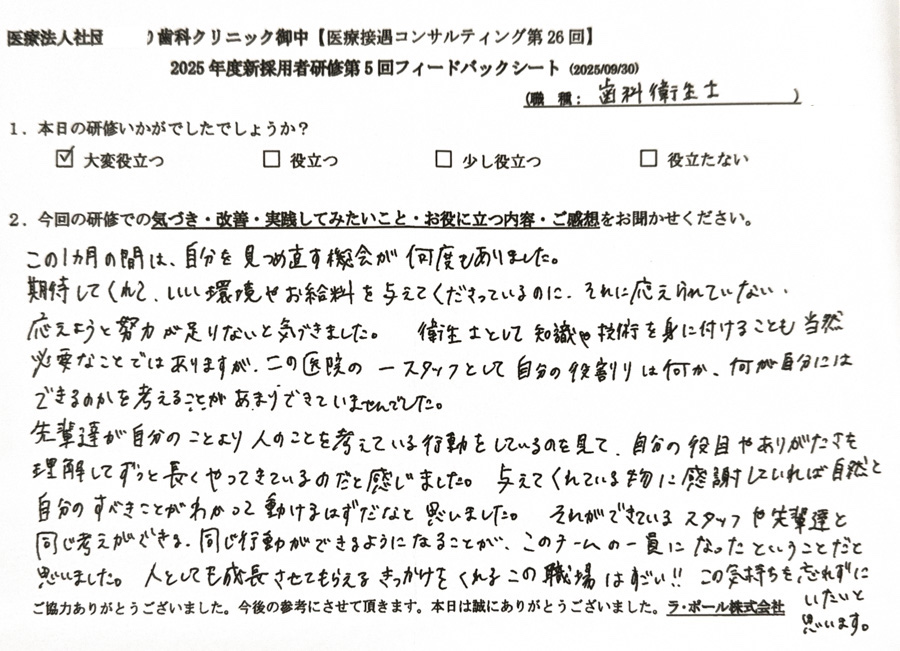 医療法人社団 り歯科クリニック御中【医療接遇コンサルティング第26回】
2025年度新採用者研修第5回フィードバックシート (2025/09/30)
(職 種: 歯科衛生士 )
1．本日の研修いかがでしたでしょうか？
☑ 大変役立つ □ 役立つ □ 少し役立つ □ 役立たない
2．今回の研修での気づき・改善・実践してみたいこと・お役に立つ内容・ご感想をお聞かせください。
この1カ月の間は、自分を見つめ直す機会が何度もありました。
期待してくれて、いい環境やお給料を与えてくださっているのに、それに応えられていない、
応えようと努力が足りないと気づきました。 衛生士として知識や技術を身に付けることも当然
必要なことではありますが、この医院の一スタッフとして自分の役割りは何か、何が自分には
できるのかを考えることがあまりできていませんでした。
先輩達が自分のことより人のことを考えている行動をしているのを見て、自分の役目やありがたさも
理解してずっと長くやってきているのだと感じました。 与えてくれている物に感謝していれば自然と
自分のすべきことがわかって動けるはずだなと思いました。 それができているスタッフや先輩達と
同じ考えができる、同じ行動ができるようになることが、このチームの一員になったということだと
思いました。 人としても成長させてもらえるきっかけをくれるこの職場はすごい!! この気持ちを忘れずに
いたいと
思います。
ご協力ありがとうございました。今後の参考にさせて頂きます。本日は誠にありがとうございました。ラ・ポール株式会社